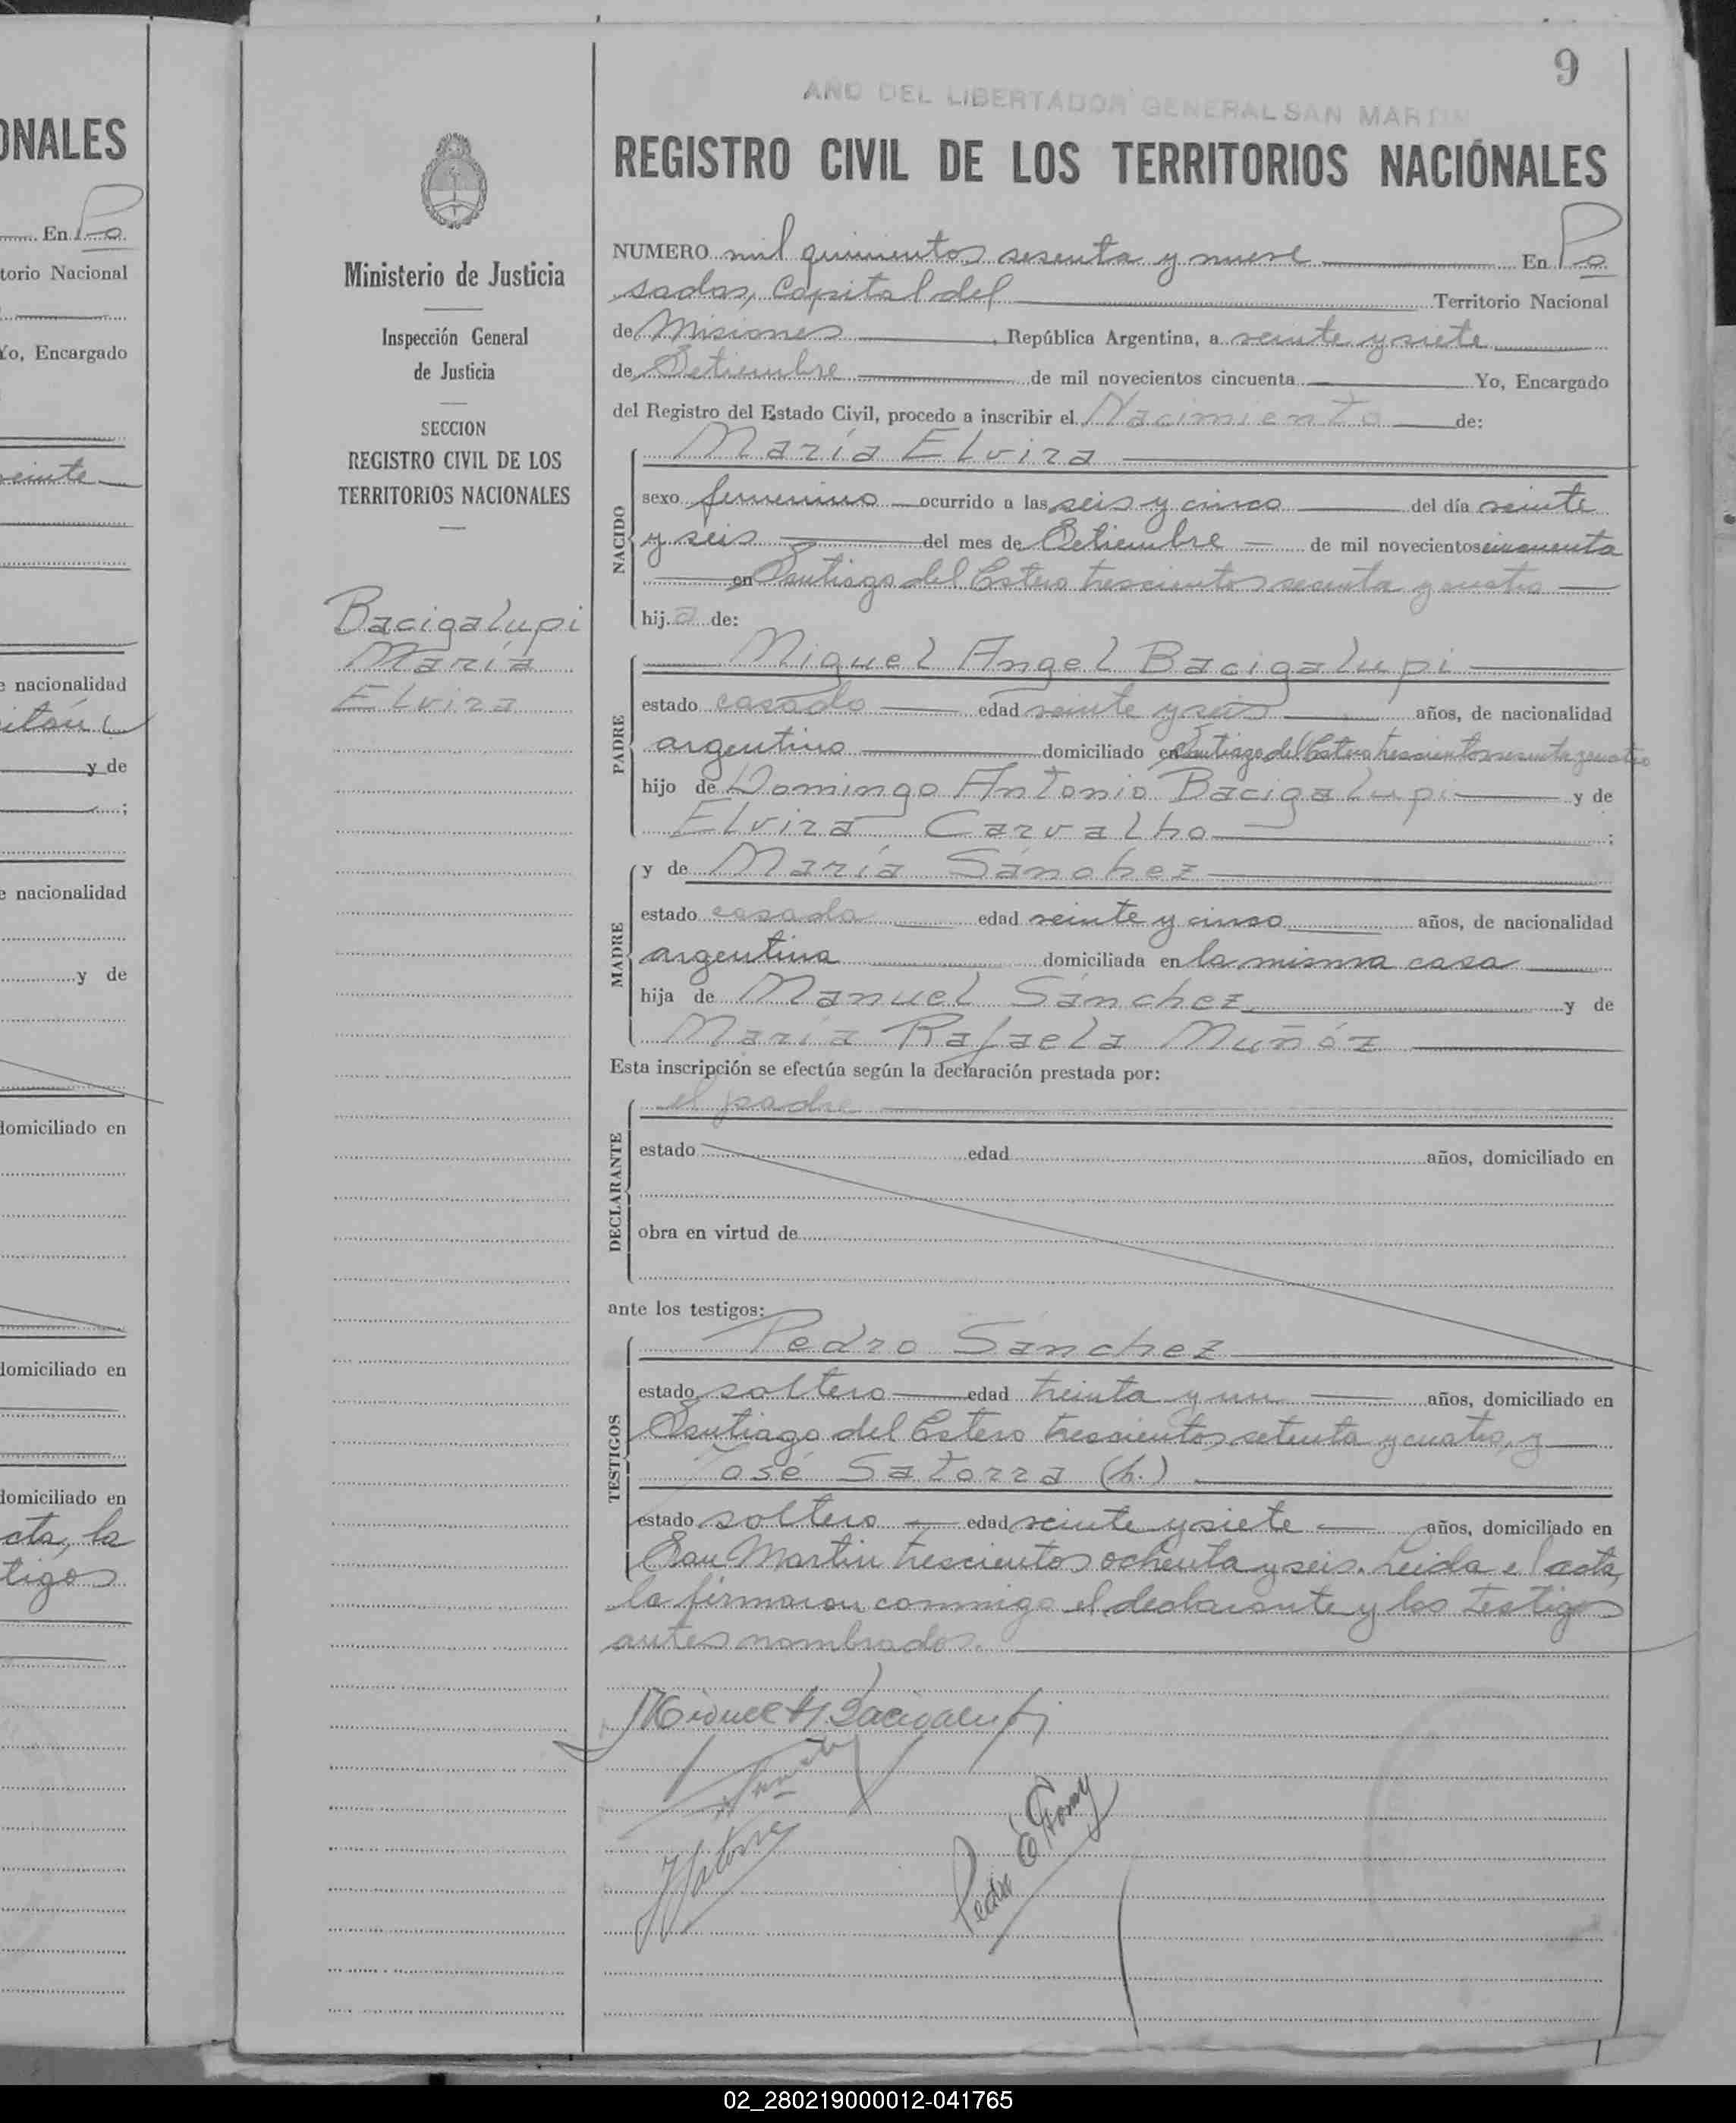 ONALES
En Po
torio Nacional
Yo, Encargado
veinte
e nacionalidad
y de
;
e nacionalidad
y de
domiciliado en
domiciliado en
domiciliado en
cta, la
tigos
Ministerio de Justicia
Inspección General
de Justicia
SECCION
REGISTRO CIVIL DE LOS
TERRITORIOS NACIONALES
Bacigalupi
María
Elvira
9
AÑO DEL LIBERTADOR GENERAL SAN MARTIN
REGISTRO CIVIL DE LOS TERRITORIOS NACIONALES
NUMERO mil quinientos sesenta y nueve En Po
sadas, Capital del Territorio Nacional
de Misiones, República Argentina, a veinte y siete
de Setiembre de mil novecientos cincuenta Yo, Encargado
del Registro del Estado Civil, procedo a inscribir el Nacimiento de:
María Elvira
NACIDO
sexo femenino ocurrido a las seis y cinco del día veinte
y seis del mes de Setiembre de mil novecientos cincuenta
en Santiago del Estero trescientos sesenta y cuatro
hija de:
Miguel Angel Bacigalupi
PADRE
estado casado edad veinte y seis años, de nacionalidad
argentino domiciliado en Santiago del Estero trescientos sesenta y cuatro
hijo de Domingo Antonio Bacigalupi y de
Elvira Carvalho ;
y de María Sánchez
MADRE
estado casada edad veinte y cinco años, de nacionalidad
argentina domiciliada en la misma casa
hija de Manuel Sánchez y de
María Rafaela Muñóz
Esta inscripción se efectúa según la declaración prestada por:
el padre
DECLARANTE
estado edad años, domiciliado en
obra en virtud de
ante los testigos:
Pedro Sánchez
TESTIGOS
estado soltero edad treinta y un años, domiciliado en
Santiago del Estero trescientos setenta y cuatro, y
José Satorra (h.)
estado soltero edad veinte y siete años, domiciliado en
San Martin trescientos ochenta y seis. Leida el acta,
la firmaron conmigo el declarante y los testigos
antes nombrados.
Miguel A Bacigalupi
JSatorra
Pedro E
02_280219000012-041765